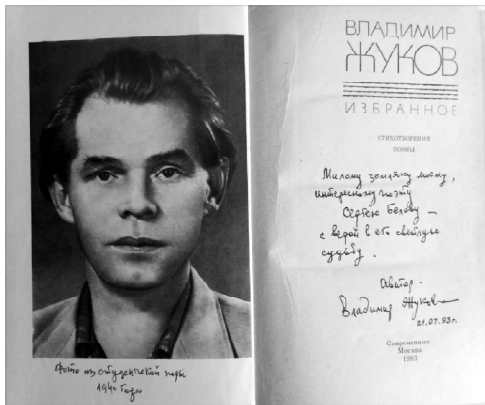 Фото из студенческой поры
года
ВЛАДИМИР
ЖУКОВ
ИЗБРАННОЕ
СТИХОТВОРЕНИЯ
ПОЭМЫ
Милому земляку моему,
интересному поэту
Сергею Белову —
с верой в его светлую
судьбу.
Автор -
Владимир Жуков
21.07.93г.
Современник
Москва
1983